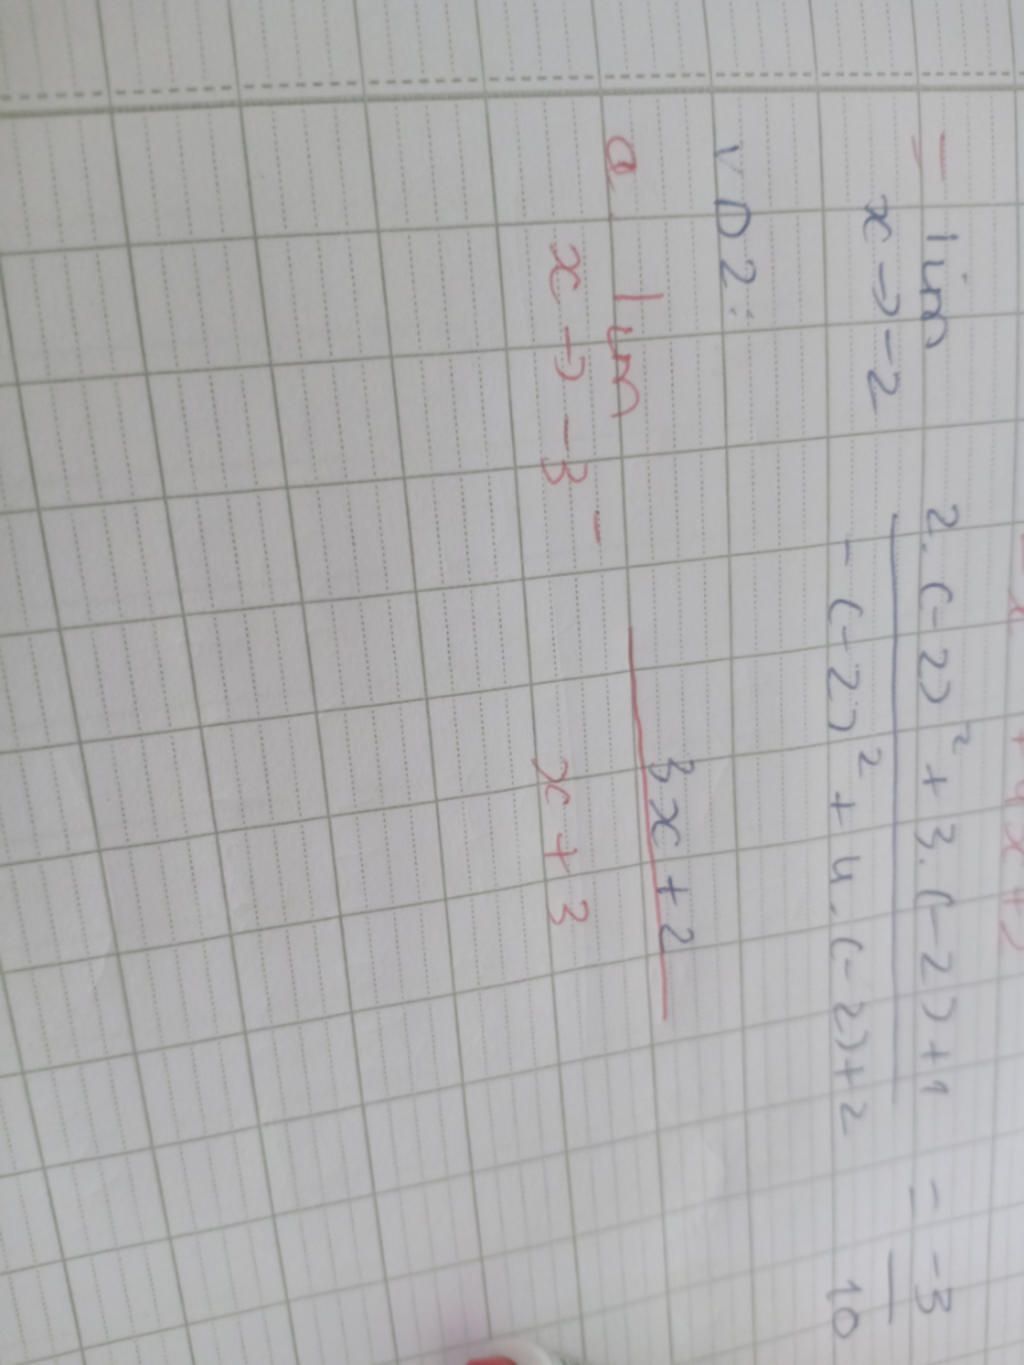 - x² + 4x + 2
= lim x → -2 2.(-2)² + 3.(-2) + 1 / -(-2)² + 4.(-2) + 2 = -3 / 10
VD2:
a. lim x → -3⁻ 3x + 2 / x + 3